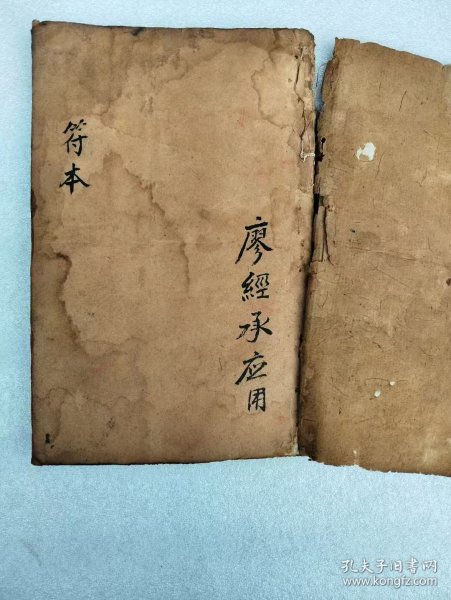 符本
廖經承应用
孔夫子旧书网
www.kongfz.com